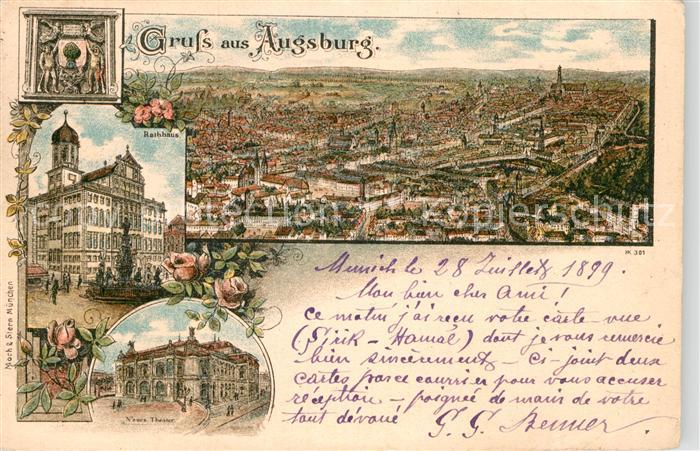 Gruss aus Augsburg.
Rathhaus
Neues Theater
Moch & Stern München
K 301
Munich le 28 Juillet 1899.
Mon bien cher Ami!
ce matin j'ai reçu votre carte-vue
(Sjrik - Hamal) dont je vous remercie
bien sincèrement - Ci-joint deux
cartes par ce courrier pour vous accuser
réception - poignée de mains de votre
tout dévoué G. G.